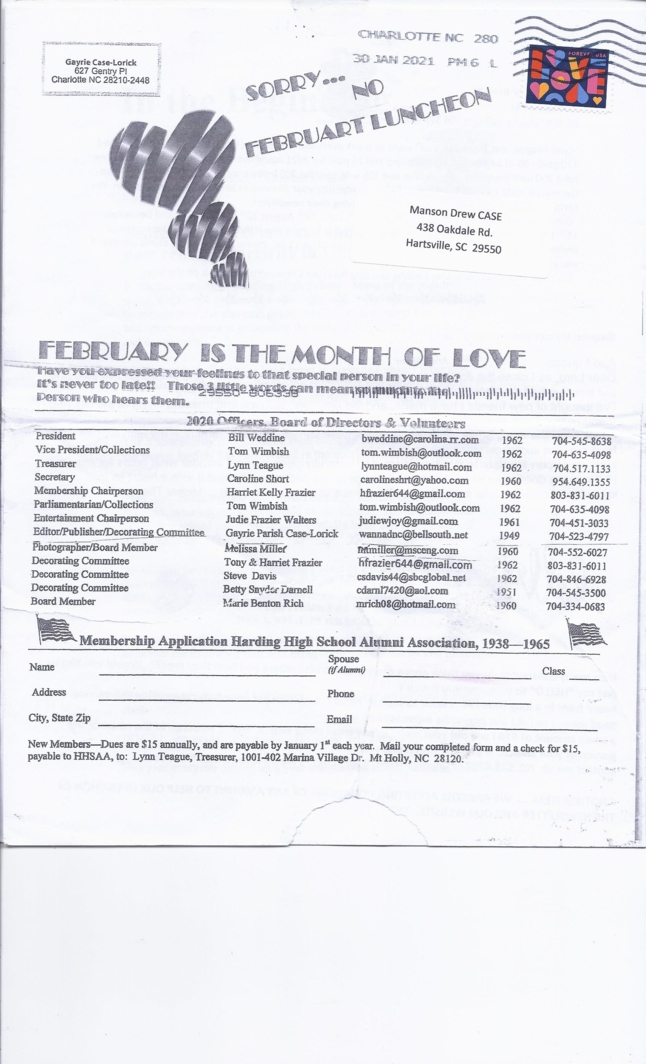 CHARLOTTE NC 280
30 JAN 2021 PM 6 L
FOREVER USA
LOVE
Gayrie Case-Lorick
627 Gentry Pl
Charlotte NC 28210-2448
SORRY... NO
FEBRUART LUNCHEON
Manson Drew CASE
438 Oakdale Rd.
Hartsville, SC 29550
FEBRUARY IS THE MONTH OF LOVE
Have you expressed your feelings to that special person in your life?
It's never too late!! Those 3 little words can mean so much to the
Person who hears them.
2020 Officers, Board of Directors & Volunteers
President Bill Weddine bweddine@carolina.rr.com 1962 704-545-8638
Vice President/Collections Tom Wimbish tom.wimbish@outlook.com 1962 704-635-4098
Treasurer Lynn Teague lynnteague@hotmail.com 1962 704.517.1133
Secretary Caroline Short carolineshrt@yahoo.com 1960 954.649.1355
Membership Chairperson Harriet Kelly Frazier hfrazier644@gmail.com 1962 803-831-6011
Parliamentarian/Collections Tom Wimbish tom.wimbish@outlook.com 1962 704-635-4098
Entertainment Chairperson Judie Frazier Walters judiewjoy@gmail.com 1961 704-451-3033
Editor/Publisher/Decorating Committee Gayrie Parish Case-Lorick wannadnc@bellsouth.net 1949 704-523-4797
Photographer/Board Member Melissa Miller mmiller@msceng.com 1960 704-552-6027
Decorating Committee Tony & Harriet Frazier hfrazier644@gmail.com 1962 803-831-6011
Decorating Committee Steve Davis csdavis44@sbcglobal.net 1962 704-846-6928
Decorating Committee Betty Snyder Darnell cdarnl7420@aol.com 1951 704-545-3500
Board Member Marie Benton Rich mrich08@hotmail.com 1960 704-334-0683
Membership Application Harding High School Alumni Association, 1938—1965
Name Spouse (if Alumni) Class
Address Phone
City, State Zip Email
New Members—Dues are $15 annually, and are payable by January 1st each year. Mail your completed form and a check for $15,
payable to HHSAA, to: Lynn Teague, Treasurer, 1001-402 Marina Village Dr. Mt Holly, NC 28120.